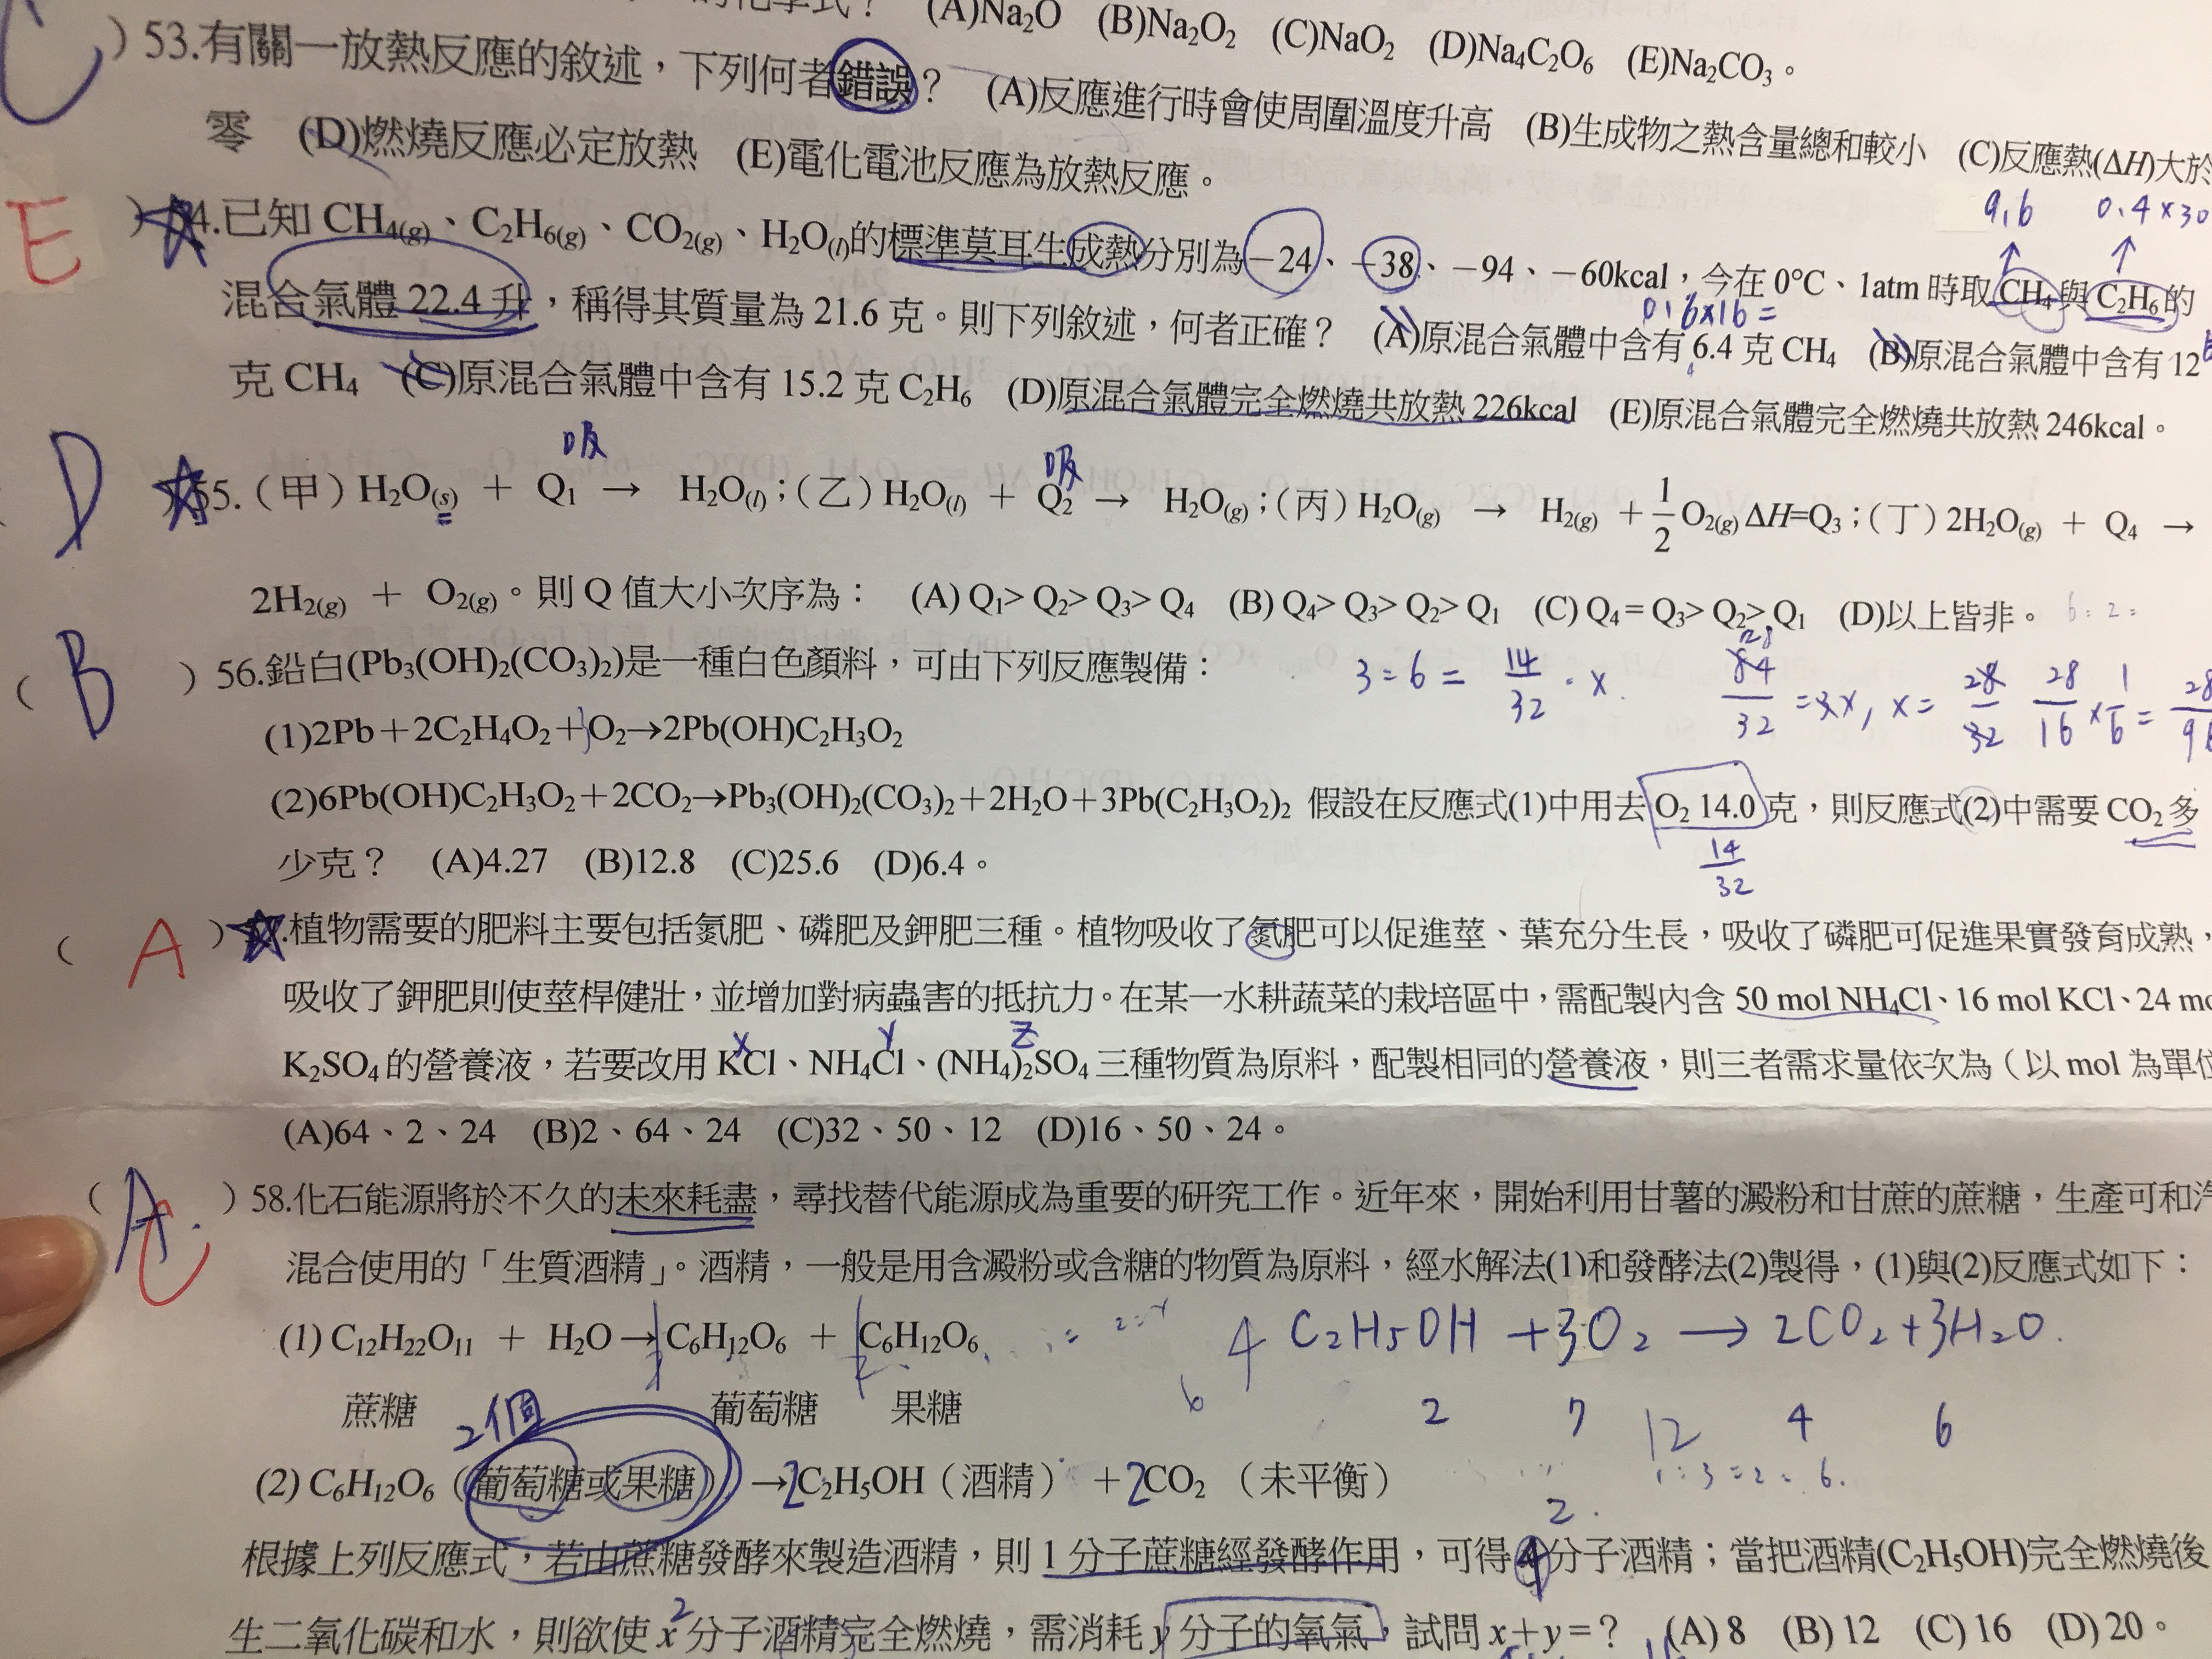 的化學式? (A)Na₂O (B)Na₂O₂ (C)NaO₂ (D)Na₄C₂O₆ (E)Na₂CO₃。
C )53.有關一放熱反應的敘述，下列何者錯誤? (A)反應進行時會使周圍溫度升高 (B)生成物之熱含量總和較小 (C)反應熱(ΔH)大於
零 (D)燃燒反應必定放熱 (E)電化電池反應為放熱反應。
9.6 0.4×30
E )☆4.已知 CH₄(g)、C₂H₆(g)、CO₂(g)、H₂O(l)的標準莫耳生成熱分別為－24、－38、－94、－60kcal，今在 0°C、1atm 時取 CH₄與 C₂H₆的
0.6×16=
混合氣體 22.4 升，稱得其質量為 21.6 克。則下列敘述，何者正確? (A)原混合氣體中含有 6.4 克 CH₄ (B)原混合氣體中含有 12
克 CH₄ (C)原混合氣體中含有 15.2 克 C₂H₆ (D)原混合氣體完全燃燒共放熱 226kcal (E)原混合氣體完全燃燒共放熱 246kcal。
吸 吸
D )☆55.（甲）H₂O(s) ＋ Q₁ → H₂O(l)；（乙）H₂O(l) ＋ Q₂ → H₂O(g)；（丙）H₂O(g) → H₂(g) ＋1/2 O₂(g) ΔH=Q₃；（丁）2H₂O(g) ＋ Q₄ →
2H₂(g) ＋ O₂(g)。則 Q 值大小次序為： (A) Q₁> Q₂> Q₃> Q₄ (B) Q₄> Q₃> Q₂> Q₁ (C) Q₄ = Q₃> Q₂> Q₁ (D)以上皆非。 6:2=
( B )56.鉛白(Pb₃(OH)₂(CO₃)₂)是一種白色顏料，可由下列反應製備：
3=6= 14/32 · x 28 84/32 =3x, x= 28/32 28/16 ×1/6=
(1)2Pb＋2C₂H₄O₂＋O₂→2Pb(OH)C₂H₃O₂
(2)6Pb(OH)C₂H₃O₂＋2CO₂→Pb₃(OH)₂(CO₃)₂＋2H₂O＋3Pb(C₂H₃O₂)₂ 假設在反應式(1)中用去 O₂ 14.0 克，則反應式(2)中需要 CO₂多
少克? (A)4.27 (B)12.8 (C)25.6 (D)6.4。
14/32
( A )☆.植物需要的肥料主要包括氮肥、磷肥及鉀肥三種。植物吸收了氮肥可以促進莖、葉充分生長，吸收了磷肥可促進果實發育成熟，
吸收了鉀肥則使莖桿健壯，並增加對病蟲害的抵抗力。在某一水耕蔬菜的栽培區中，需配製內含 50 mol NH₄Cl、16 mol KCl、24 mo
x y z
K₂SO₄的營養液，若要改用 KCl、NH₄Cl、(NH₄)₂SO₄三種物質為原料，配製相同的營養液，則三者需求量依次為（以 mol 為單位
(A)64、2、24 (B)2、64、24 (C)32、50、12 (D)16、50、24。
( A C )58.化石能源將於不久的未來耗盡，尋找替代能源成為重要的研究工作。近年來，開始利用甘薯的澱粉和甘蔗的蔗糖，生產可和汽
混合使用的「生質酒精」。酒精，一般是用含澱粉或含糖的物質為原料，經水解法(1)和發酵法(2)製得，(1)與(2)反應式如下：
(1) C₁₂H₂₂O₁₁ ＋ H₂O→C₆H₁₂O₆ ＋ C₆H₁₂O₆
4 C₂H₅OH +3O₂ → 2CO₂+3H₂O.
蔗糖 葡萄糖 果糖
6 2 7 12 4 6
2個
1:3=2:6.
(2) C₆H₁₂O₆（葡萄糖或果糖）→2C₂H₅OH（酒精）＋2CO₂（未平衡）
2.
根據上列反應式，若由蔗糖發酵來製造酒精，則 1 分子蔗糖經發酵作用，可得4分子酒精；當把酒精(C₂H₅OH)完全燃燒後
2
生二氧化碳和水，則欲使 x 分子酒精完全燃燒，需消耗 y 分子的氧氣，試問 x＋y＝? (A) 8 (B) 12 (C) 16 (D) 20。